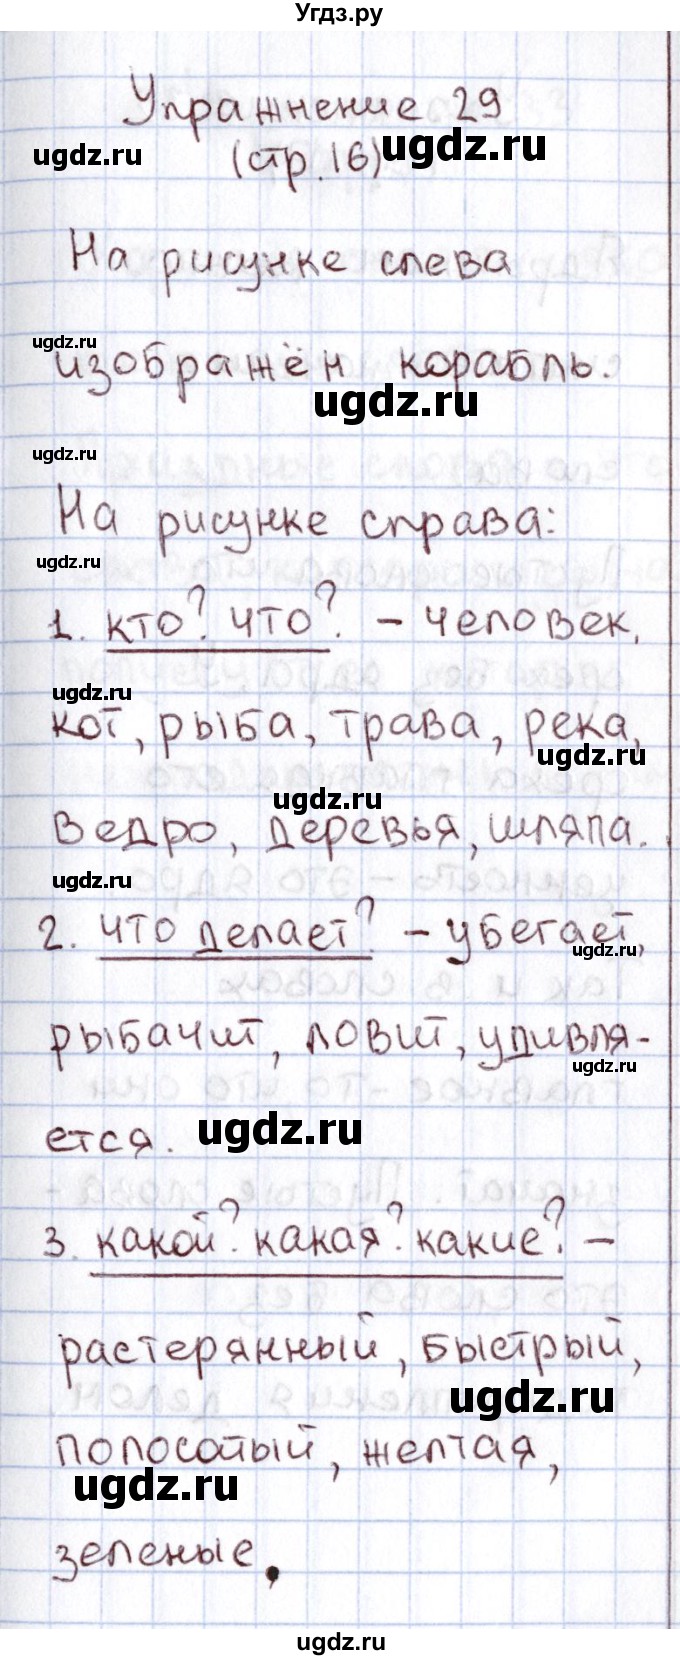 Угдз.ру
Упражнение 29
ugdz.ru
(стр. 16)
ugdz.ru
На рисунке слева
ugdz.ru
изображён корабль.
ugdz.ru
ugdz.ru
На рисунке справа:
ugdz.ru
1. кто? что? – человек,
ugdz.ru
кот, рыба, трава, река,
ugdz.ru
ugdz.ru
ведро, деревья, шляпа.
ugdz.ru
2. что делает? – убегает,
ugdz.ru
рыбачит, ловит, удивля-
ugdz.ru
ется.
ugdz.ru
3. какой? какая? какие? –
растерянный, быстрый,
ugdz.ru
полосатый, желтая,
ugdz.ru
зеленые,
ugdz.ru